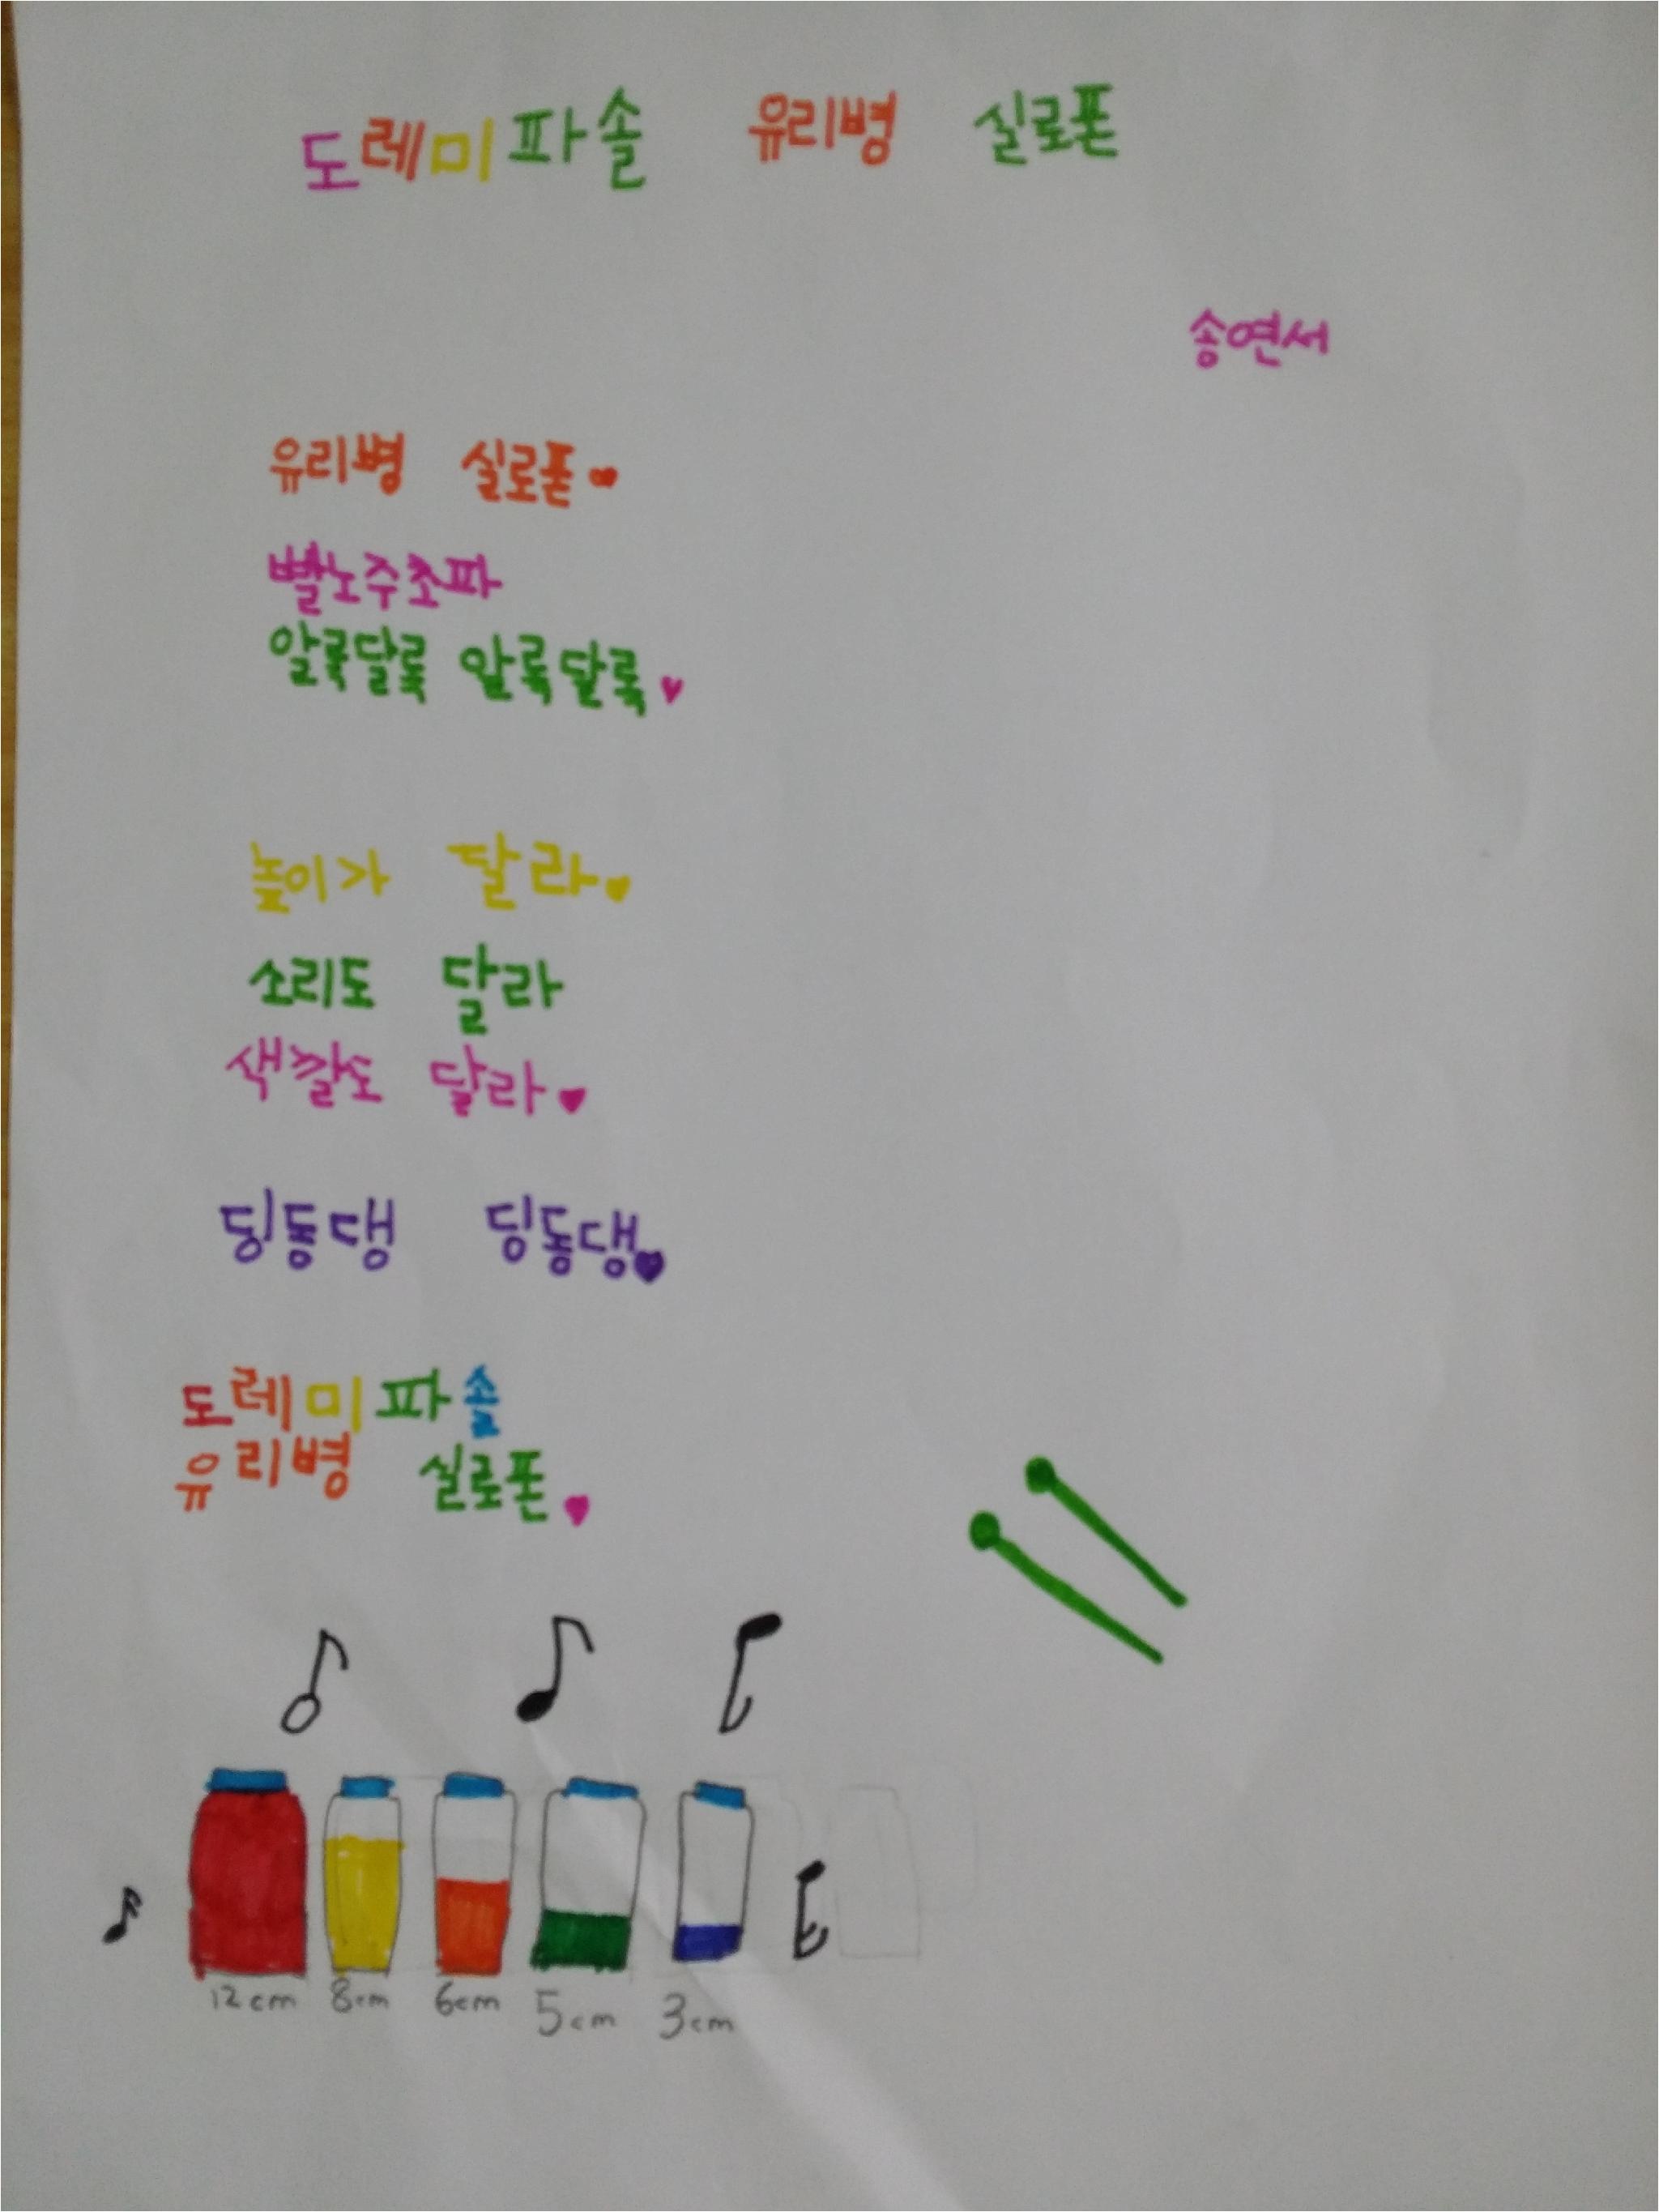 도레미파솔 유리병 실로폰
송연서
유리병 실로폰
빨노주초파
알록달록 알록달록
높이가 달라
소리도 달라
색깔도 달라
딩동댕 딩동댕
도레미파솔
유리병 실로폰
12cm 8cm 6cm 5cm 3cm